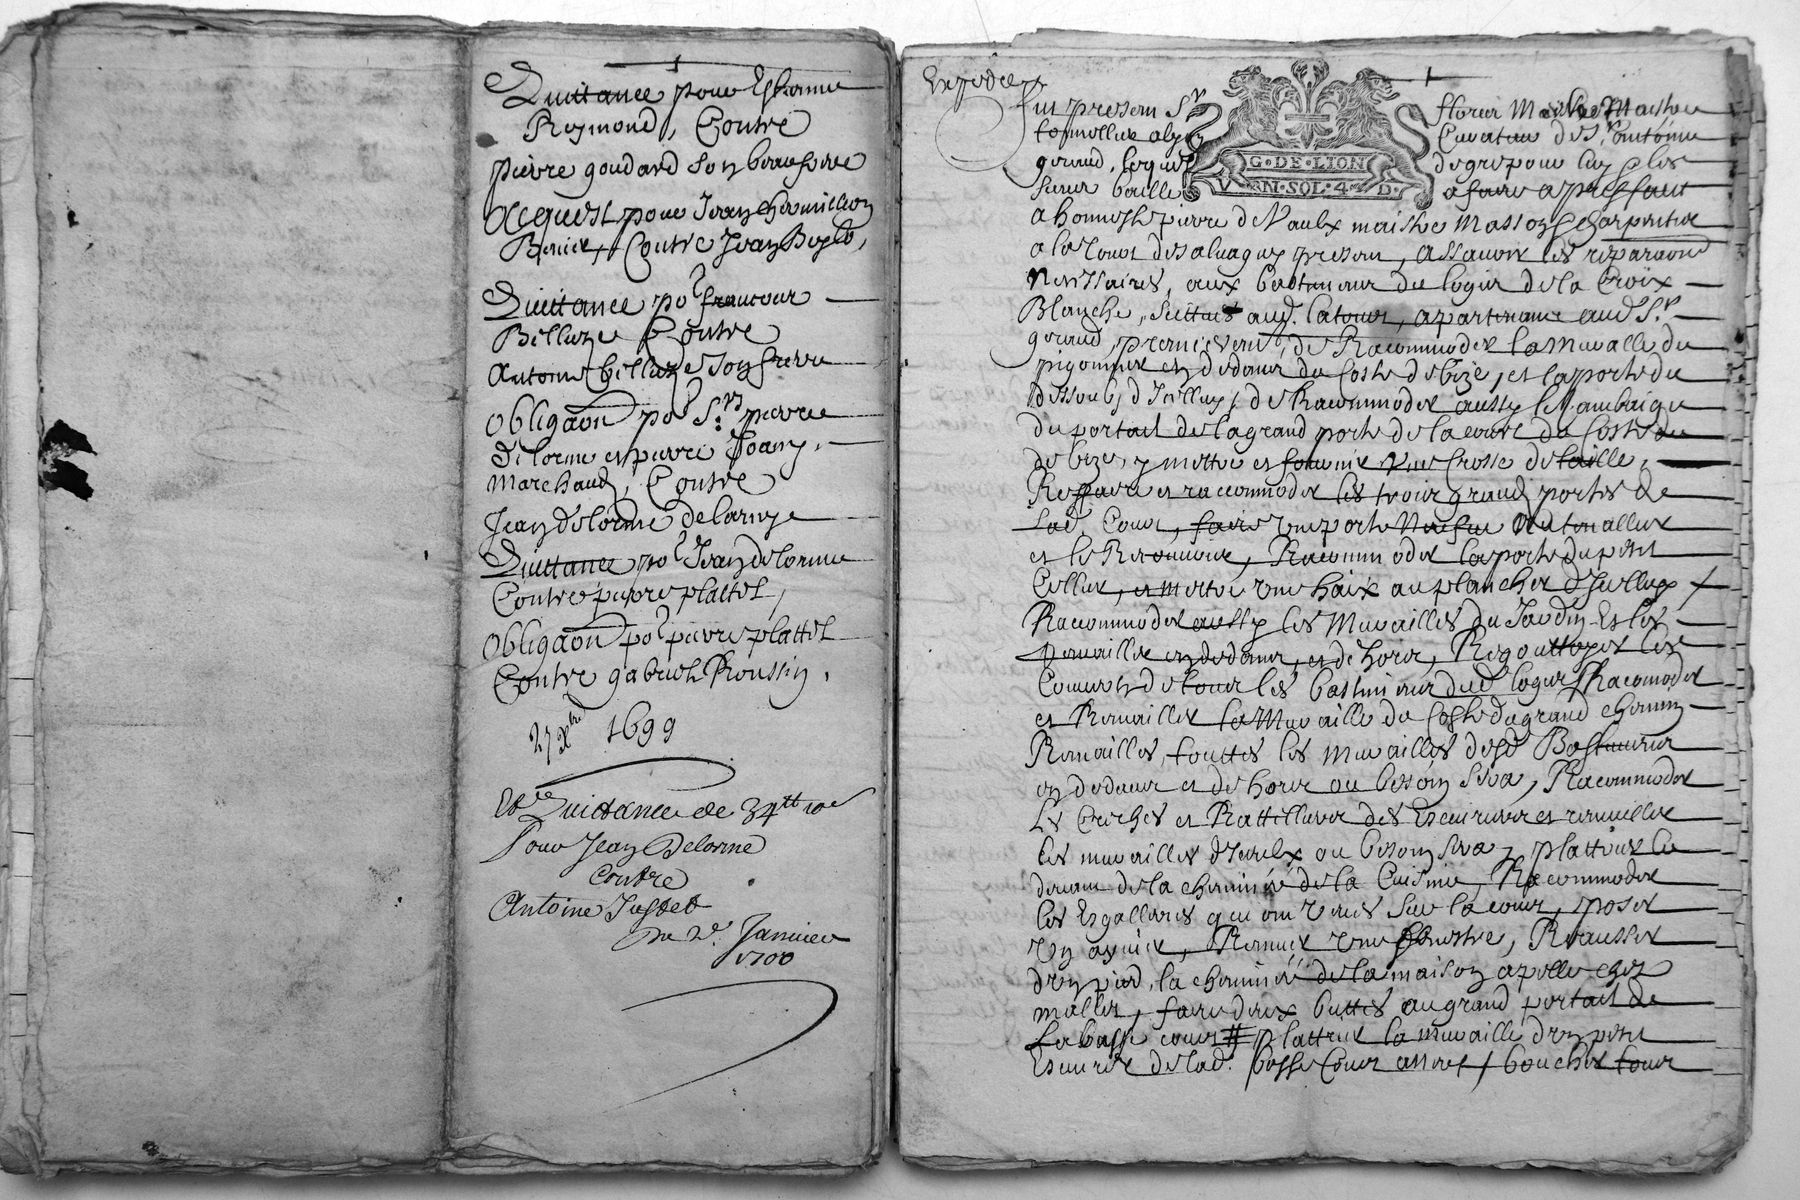 Quittance pour Estienne
Reymond, Contre
pierre goudard son beaufrere
Acquest pour Jean
Contre Jean
Quittance por francour
Belluze Contre
Antoine Belluze son frere
Obligaon por Srs pierre
delorme et pierre Joany
marchand, Contre
Jean delorme delaruye
Quittance por Jean delorme
Contre pierre plattel,
Obligaon por pierre plattel
Contre gabriel Roussin.
27 Xbre 1699
Et Quictance de 34tt 10s
Pour Jean Delorme
Contre
Antoine
Du 2e. Janvier
1700
Expediée
Fut present Sr
G. DE. LION
VN. SOL. 4. D.
florir Maistre
curateur de Sr. antoine
geraud, lequel de gré pour luy et les
siens baille a faire a prisfait
a honneste pierre deVaulx maistre Masson et charpentier
a la Tour desalvagny present, assavoir les reparaons
nenssaires, aux bastimens du logis dela Croix
Blanche, scittués aud. la tour, apartenant aud. Sr.
geraud, premierement, de Racommoder la muraille du
pigonnier en dedans du Costé de bize, et la porte du
dessoubs d'Icelluy, de Racommoder aussy les
du portail de la grand porte de la cour du Costé de
de bize, y mettre et fournir une Crosse de taille,
Reffaire et raccommoder les trois grand portes de
Lad. Cour, faire une porte neufve
et le Racommoder la porte du petit
Cellier, et mettre une haix au plancher d'Icelluy
Racommoder aussy les Murailles du Jardin Et les
remailler en dedans, et de hors, Regouttoyer les
Couverts de tous les bastimens dud. logis, Racomoder
et Remailler la Muraille du Costé du grand chemin
Remailler, touttes les murailles desd. Bastimens
en dedans et de hors ou besoin sera, Racommoder
Les Creches et Rattelliers des Escuiries et remailler
les murailles d'Icelx ou besoin sera, plattrir le
devant de la cheminée de la Cuisine, Racommoder
les Esgalleries qui ont veues sur la cour, poser
un évier, Remuer une fenestre, Reausser
d'un pied, la cheminée de la maison apellé chez
mallet, faire deux buttes au grand portail de
La basse cour # plattrir la muraille d'un petit
Escurie de lad. basse Cour boucher tous